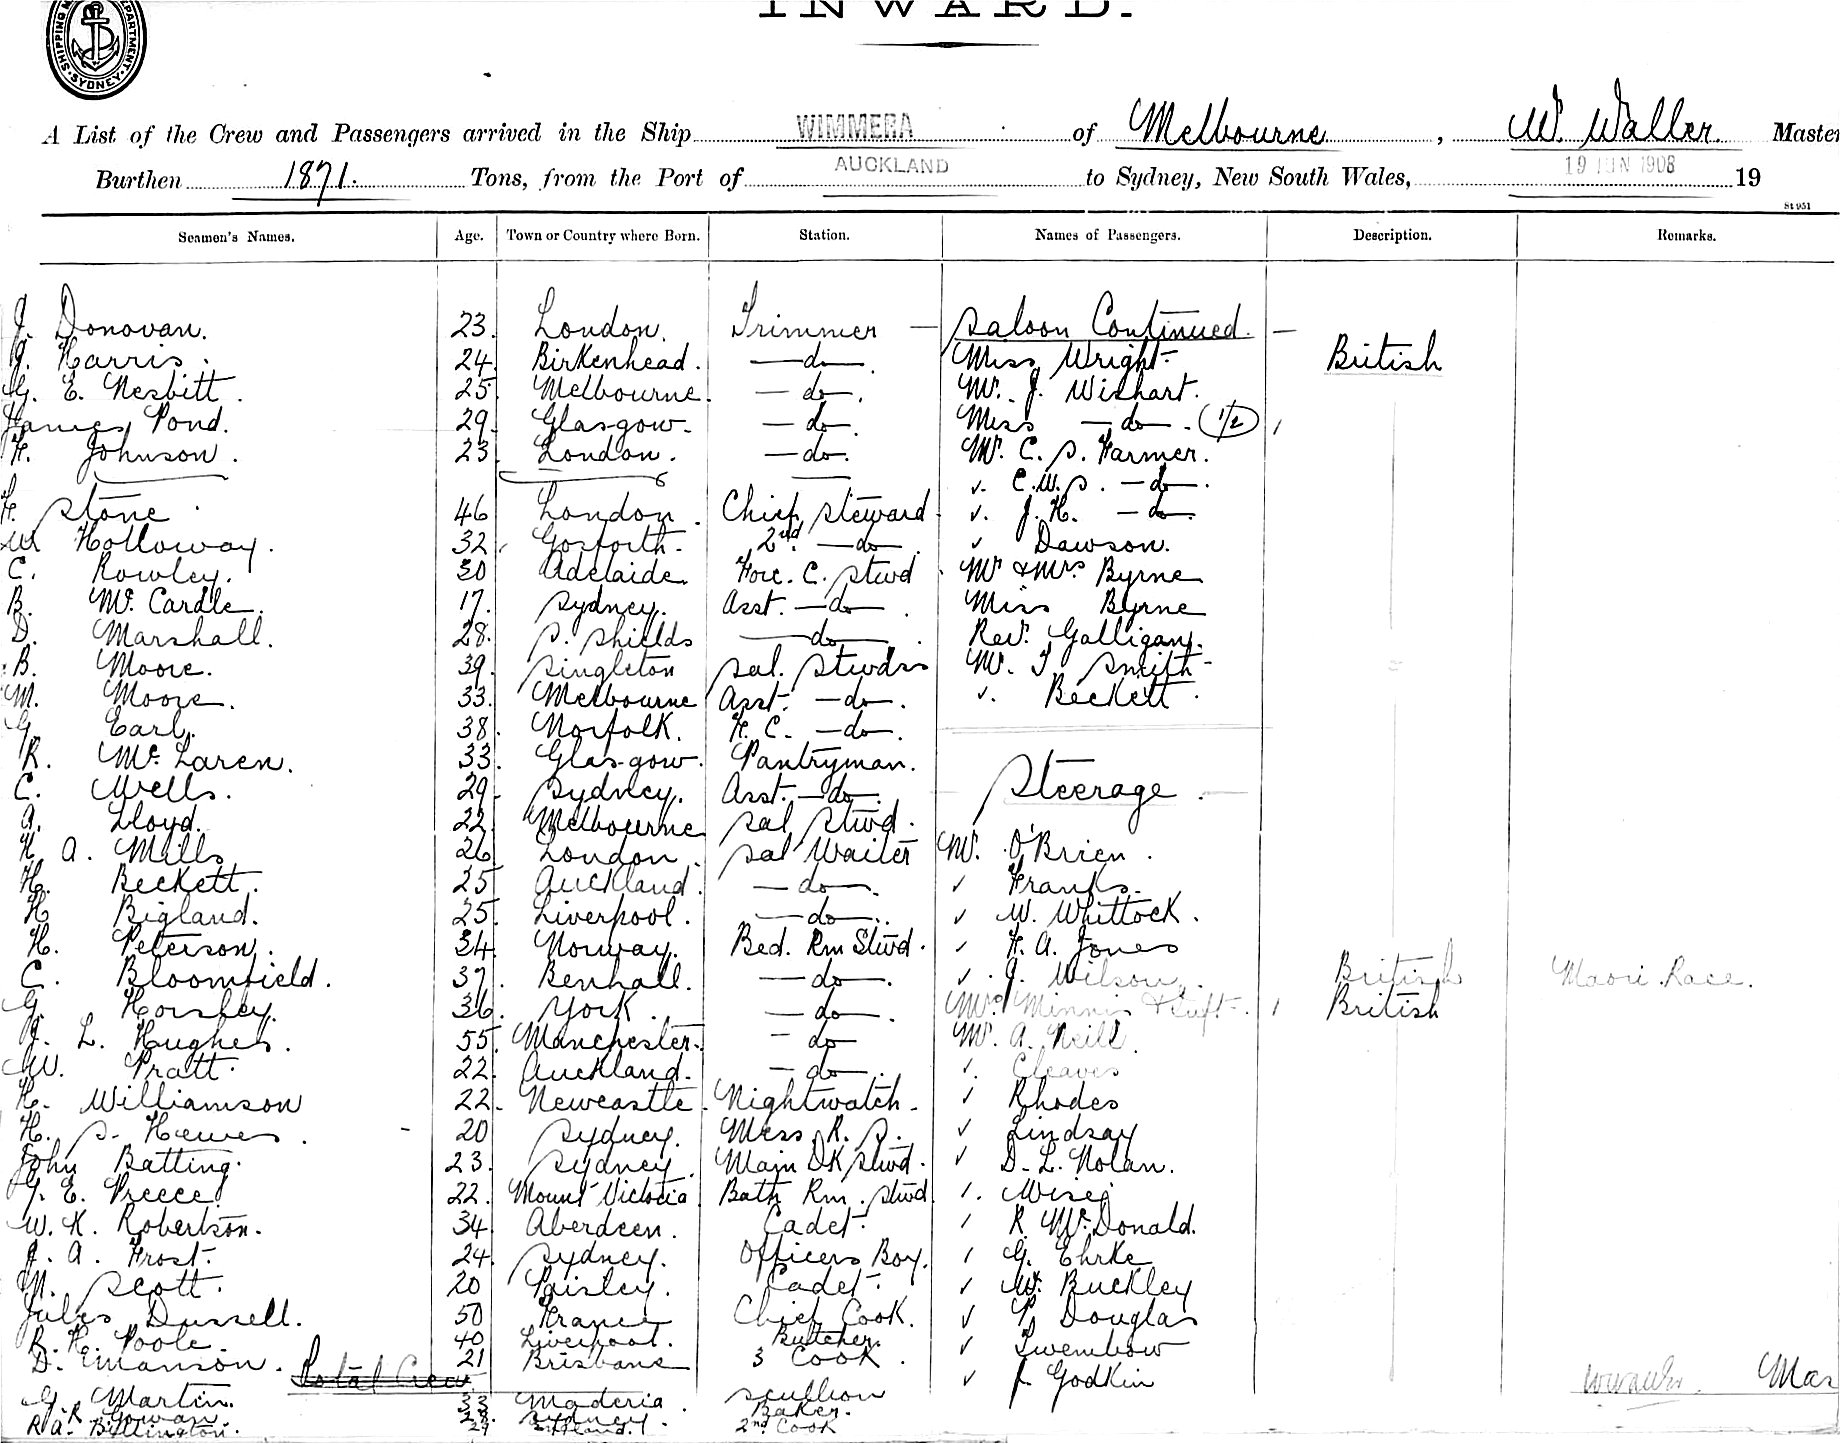 INWARD.
SHIPPING DEPARTMENT. SYDNEY
A List of the Crew and Passengers arrived in the Ship WIMMERA of Melbourne, W. Waller. Master
Burthen 1871. Tons, from the Port of AUCKLAND to Sydney, New South Wales, 19 JUN 1908 19
St 951
Seamen's Names. Age. Town or Country where Born. Station. Names of Passengers. Description. Remarks.
J. Donovan. 23. London. Trimmer — Saloon Continued. —
J. Harris. 24. Birkenhead. —do— Miss Wright British
G. E. Nesbitt. 25. Melbourne. —do. Mr. J. Wishart.
James Pond. 29. Glasgow. —do. Miss —do—. (1/2)
H. Johnson. 23. London. —do. Mr. C. S. Farmer.
C.W.S. —do—.
H. Stone. 46 London. Chief Steward. J. H. —do—.
W. Holloway. 32. Gosforth. 2nd. —do Dawson.
C. Rowley. 30 Adelaide. Forc. C. Stwd Mr & Mrs Byrne
B. Mc. Cardle. 17. Sydney. Asst. —do—. Miss Byrne
D. Marshall. 28. S. Shields —do— Revd. Galligan.
B. Moore. 39. Singleton Sal. Stwdss Mr. T. Smith
M. Moore. 33. Melbourne Asst. —do—. Beckett.
G. Earl. 38. Norfolk. F. C. —do—.
R. Mc. Laren. 33. Glasgow. Pantryman.
C. Wells. 29. Sydney. Asst. —do—. Steerage.
A. Lloyd. 22. Melbourne Sal Stwd.
H. A. Mills 26. London. Sal Waiter Mr. O'Brien.
H. Beckett. 25 Auckland. —do—. Franks.
H. Bigland. 25. Liverpool. —do—. W. Whittock.
H. Peterson. 34. Norway. Bed. Rm Stwd. H. A. Jones
C. Bloomfield. 37. Benhall. —do—. J. Wilson. British Maori Race.
G. Horsley. 36. York. —do—. Mrs. Minnis & Inft. 1 British
J. L. Hughes. 55. Manchester. —do Mr. A. Neill.
W. Pratt. 22. Auckland. —do—. Cleaves
H. Williamson 22. Newcastle. Nightwatch. Rhodes
H. S. Hewes. 20 Sydney. Mess R. S. Lindsay
John Batting. 23. Sydney. Main DK Stwd. D. L. Nolan.
J. E. Preece 22. Mount Victoria Bath Rm. Stwd Wise
W. K. Robertson. 34 Aberdeen. Cadet. R. McDonald.
J. A. Frost. 24. Sydney. Officers Boy. G. Ehrke
M. Scott. 20 Paisley. Cadet. W. Buckley
Jules Dussell. 50 France Chief Cook. P. Douglas
R. H. Poole. 40 Liverpool. Butcher. Twembow
D. Manson. 21 Brisbane 3 Cook. J. Godkin
Total Crew
G. Martin. 33 Maderia Scullion
R. Gowan. Sydney. Baker.
R. A. Billington. 2nd Cook